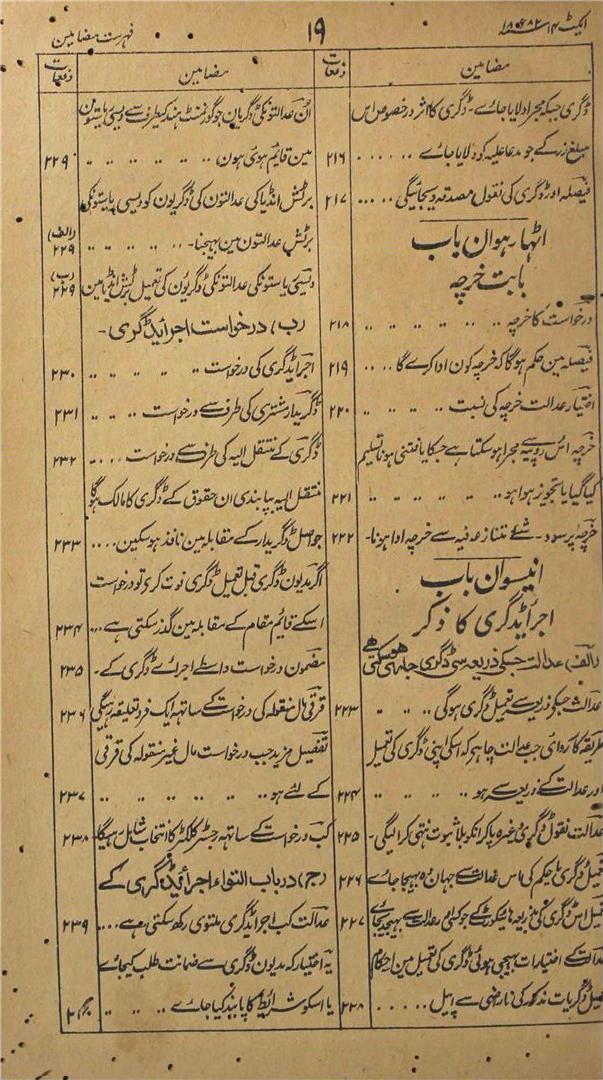 ایکٹ ۱۴ سنہ ۱۸۸۲ع
۱۹
فہرست مضامین
مضامین
دفعات
ڈگری جبکہ مجرا دلایا جائے ۔ ڈگری کا اثر در خصوص اس
مبلغ زر کے جو مدعا علیہ کو دلایا جائے ۔۔۔۔ ۲۱۶
فیصلہ اور ڈگری کی نقول مصدقہ دیجائیگی ۔۔۔۔ ۲۱۷
اٹھارہوان باب
بابت خرچہ
درخواست کا خرچہ ۔۔ ۔۔ ۔۔ ۔۔ ۲۱۸
فیصلہ مین حکم ہوگا کہ خرچہ کون ادا کرے گا ۔۔۔۔ ۲۱۹
اختیار عدالت خرچہ کی نسبت ۔۔ ۔۔ ۔۔ ۲۲۰
خرچہ اس روپیہ سے مجرا ہوسکتا ہے جسکا یافتنی ہونا تسلیم
کیا گیا یا تجویز ہوا ہو ۔۔ ۔۔ ۔۔ ۔۔ ۲۲۱
خرچہ پر سود ۔ شئے متنازعہ فیہ سے خرچہ ادا ہونا ۔ ۲۲۲
انیسوان باب
اجرائے ڈگری کا ذکر
(الف) عدالت جسکے ذریعہ سے ڈگری جاری ہوسکتی ہے
عدالت جسکے ذریعہ سے تعمیل ڈگری ہوگی ۔۔ ۔۔ ۲۲۳
طریقہ کارروائی جب عدالت چاہے کہ اسکی اپنی ڈگری کی تعمیل
اور عدالت کے ذریعہ سے ہو ۔۔ ۔۔ ۔۔ ۲۲۴
عدالت نقول ڈگری وغیرہ پاکر انکو بلا ثبوت نتھی کرالیگی ۔ ۲۲۵
تعمیل ڈگری یا حکم کی اس عدالت سے جہان وہ بھیجا جائے ۲۲۶
تعمیل اس ڈگری کی بذریعہ ہائیکورٹ کے جو کسی اور عدالت سے بھیجی جائے ۲۲۷
عدالت کے اختیارات بھیجی ہوئی ڈگری کی تعمیل مین احکام
تعمیل ڈگریات مذکور کی ناراضی سے اپیل ۔۔۔۔ ۲۲۸
مضامین
دفعات
ان عدالتونکی ڈگریان جو گورنمنٹ ہند کیطرف سے دیسی ریاستون
مین قایم ہوئی ہون ۔۔ ۔۔ ۔۔ ۔۔ ۲۲۹
برٹش انڈیا کی عدالتون کی ڈگریون کو دیسی ریاستونکی
برٹش عدالتون مین بھیجنا ۔۔۔ ۔۔ ۔۔ ۲۲۹ (الف)
دیسی ریاستونکی عدالتونکی ڈگریون کی تعمیل برٹش انڈیا مین ۲۲۹ (ب)
(ب) درخواست اجرائے ڈگری ۔
اجرائے ڈگری کی درخواست ۔۔ ۔۔ ۔۔ ۲۳۰
ڈگریدار مشترک کی طرف سے درخواست ۔۔ ۔۔ ۲۳۱
ڈگری کے منتقل الیہ کی طرف سے درخواست ۔۔۔۔ ۲۳۲
منتقل الیہ بپابندی ان حقوق کے ڈگری کا مالک ہوگا
جو اصل ڈگریدار کے مقابلہ مین نافذ ہوسکین ۔۔۔۔ ۲۳۳
اگر مدیون ڈگری قبل تعمیل ڈگری فوت کرے تو درخواست
اسکے قایم مقام کے مقابلہ مین گذر سکتی ہے ۔۔۔ ۲۳۴
مضمون درخواست واسطے اجرائے ڈگری کے ۔ ۲۳۵
قرقی مال منقولہ کی درخواست کے ساتھ ایک فرد تعلیقہ رہیگی ۲۳۶
تفصیل مزید جب درخواست مال غیر منقولہ کی قرقی
کے لئے ہو ۔۔ ۔۔ ۔۔ ۔۔ ۲۳۷
کب درخواست کے ساتھ رجسٹر کلکٹر کا انتخاب شامل رہیگا ۲۳۸
(ج) در باب التواء اجرائے ڈگری کے
عدالت کب اجرائے ڈگری ملتوی رکھ سکتی ہے ۔۔۔۔ ۲۳۹
یہ اختیار کہ مدیون ڈگری سے ضمانت طلب کیجائے
یا اسکو شرائط کا پابند کیا جائے ۔۔ ۔۔ ۔۔